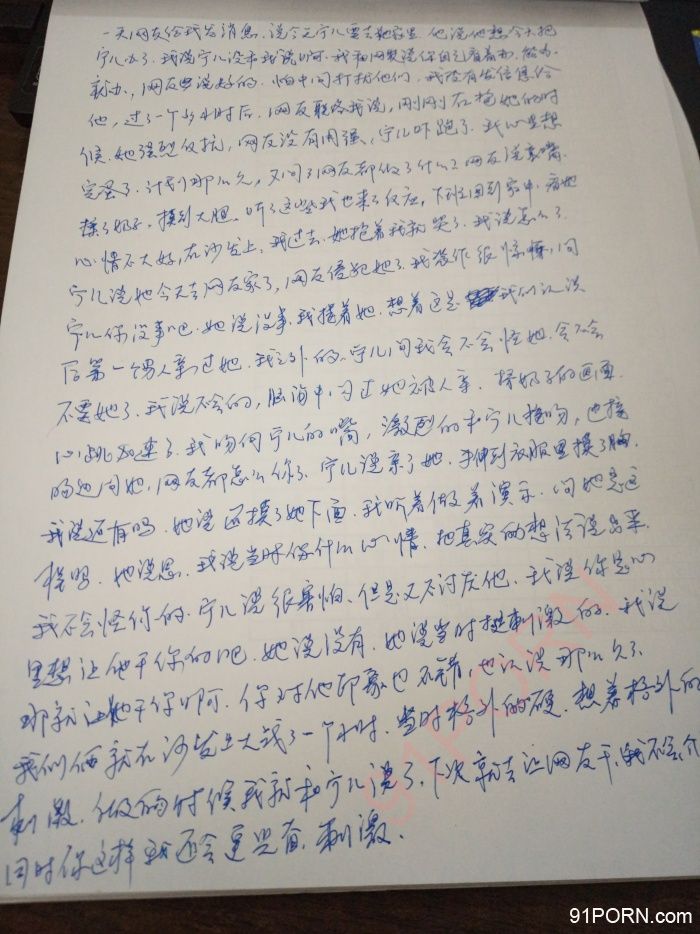 一天网友给我发消息.说今天宁儿要去她家里.他说他想今天把
宁儿办了.我说宁儿没和我说啊.我和网友说你自己看着办.能办
就办,网友也说好的.怕中间打扰他们.我没有发信息给
他,过了一个多小时后.网友联络我说,刚刚在抱她的时
候.她强烈反抗,网友没有用强,宁儿吓跑了.我心里想
完蛋了.计划那么久,又问了网友都做了什么?网友说亲嘴.
摸了奶子,摸到大腿.听了这些我也来了反应,下班回到家中.看她
心情不太好,在沙发上.我过去.她抱着我就哭了.我说怎么了.
宁儿说她今天去网友家了,网友侵犯她了.我装作很惊,问
宁儿你没事吧.她说没事.我搂着她.想着这是我们认识
后第一个男人亲过她.我之外的.宁儿问我会不会怪她.会不会
不要她了.我说不会的,脑海中闪过她被人亲.揉奶子的画面.
心跳加速了.我吻向宁儿的嘴,激烈的和宁儿接吻,边接
吻边问她,网友都怎么你了.宁儿说亲了她.手伸到衣服里摸了胸.
我说还有吗.她说还摸了她下面.我听着做着演示.问她是这
样吗.她说恩.我说当时你什么心情.把真实的想法说出来.
我不会怪你的.宁儿说很害怕.但是又不讨厌他.我说你是心
里想让他干你的吧.她说没有.她说当时挺刺激的.我说
那就让他干你啊.你对他印象也不错,也认识那么久了.
我们俩就在沙发上大战了一个小时.当时格外的硬.想着格外的
刺激.做的时候我就和宁儿说了.下次就去让网友干,我不会介
同时你这样我还会更兴奋.刺激.
91PORN
91PORN.com